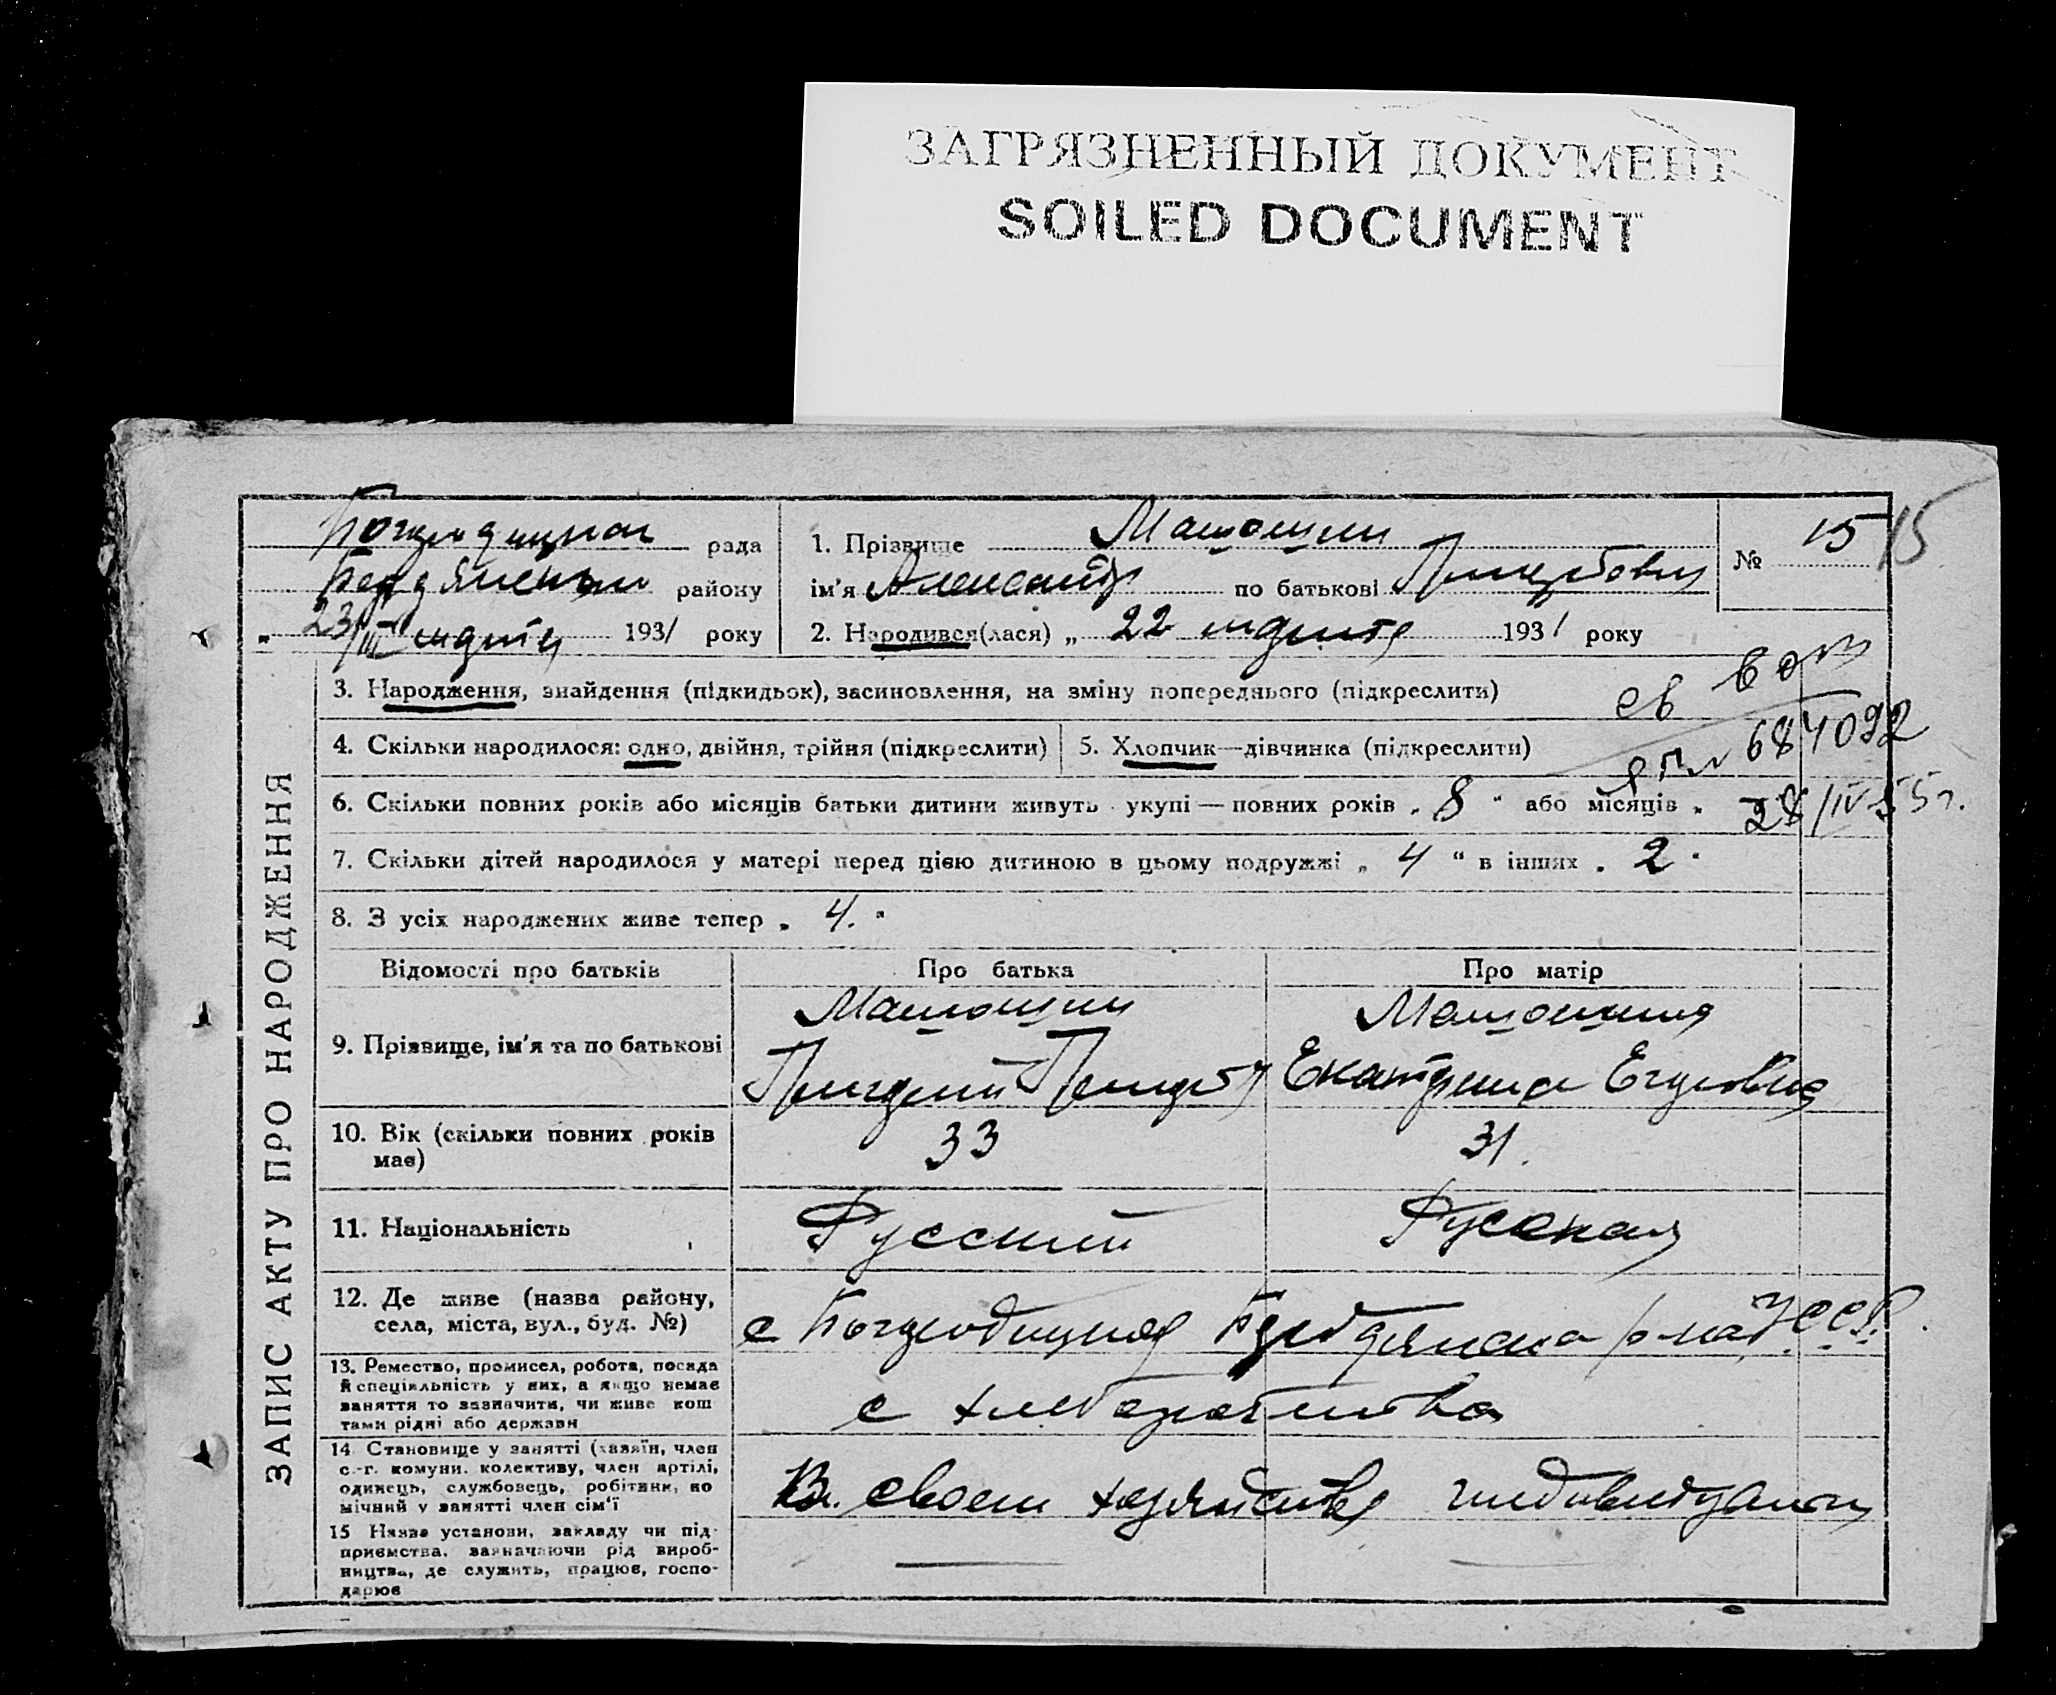 ЗАГРЯЗНЕННЫЙ ДОКУМЕНТ
SOILED DOCUMENT
ЗАПИС АКТУ ПРО НАРОДЖЕННЯ
рада
району
„ 23/III марта 1931 року
1. Прізвище
ім'я Александр по батькові
2. Народився(лася) „ 22 марта 1931 року
№ 15
15
3. Народження, знайдення (підкидьок), засиновлення, на зміну попереднього (підкреслити)
4. Скільки народилося: одно, двійня, трійня (підкреслити)
5. Хлопчик—дівчинка (підкреслити)
684092
28/IV 55 г.
6. Скільки повних років або місяців батьки дитини живуть укупі — повних років „ 8 " або місяців „
7. Скільки дітей народилося у матері перед цією дитиною в цьому подружжі „ 4 " в інших „ 2 "
8. З усіх народжених живе тепер „ 4. "
Відомості про батьків
Про батька
Про матір
9. Прізвище, ім'я та по батькові
Екатерина Егоровна
10. Вік (скільки повних років має)
33
31.
11. Національність
Русский
Русская
12. Де живе (назва району, села, міста, вул., буд. №)
с р-на УССР.
13. Ремество, промисел, робота, посада
й спеціяльність у них, а якщо немає
заняття то зазначити, чи живе кош
тами рідні або держави
с хлебопашества
14 Становище у занятті (хазяїн, член
с.-г. комуни, колективу, член артілі,
одинець, службовець, робітник, по
мічний у занятті член сім'ї
В своем хозяйстве
15 Назва установи, закладу чи під-
приємства, зазначаючи рід вироб-
ництва, де служить, працює, госпо-
дарює